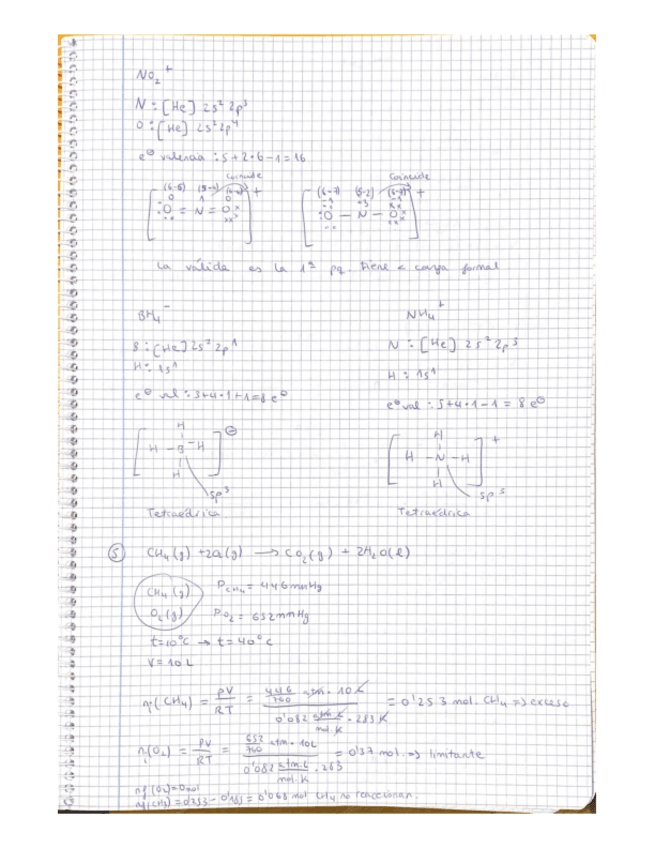 NO₂⁺
N : [He] 2s² 2p³
O : [He] 2s² 2p⁴
e⊖ valencia : 5 + 2·6 − 1 = 16
coincide coincide
(6-6) (5-4) (6-6) (6-7) (5-2) (6-7)
[O = N = O]⁺ [O − N − O]⁺
La válida es la 1ª pq. tiene < carga formal
BH₄⁻ NH₄⁺
B : [He] 2s² 2p¹ N : [He] 2s² 2p³
H : 1s¹ H : 1s¹
e⊖ val : 3+4·1+1=8 e⊖ e⊖ val : 5+4·1−1 = 8 e⊖
H H
[H − B − H]⊖ [H − N − H]⁺
H H
sp³ sp³
Tetraédrica Tetraédrica
⑤ CH₄(g) + 2O₂(g) → CO₂(g) + 2H₂O(l)
CH₄(g) P_CH₄ = 446 mmHg
O₂(g) P_O₂ = 652 mmHg
t=10°C → t=40°C
V = 10 L
nᵢ(CH₄) = PV/RT = (446/760 atm · 10 L)/(0'082 atm·L/mol·K · 283 K) = 0'253 mol. CH₄ ⇒ exceso
nᵢ(O₂) = PV/RT = (652/760 atm · 10L)/(0'082 atm·L/mol·K · 283) = 0'37 mol. ⇒ limitante
nf (O₂) = 0 mol
nf (CH₄) = 0'253 − 0'185 = 0'068 mol CH₄ no reaccionan.